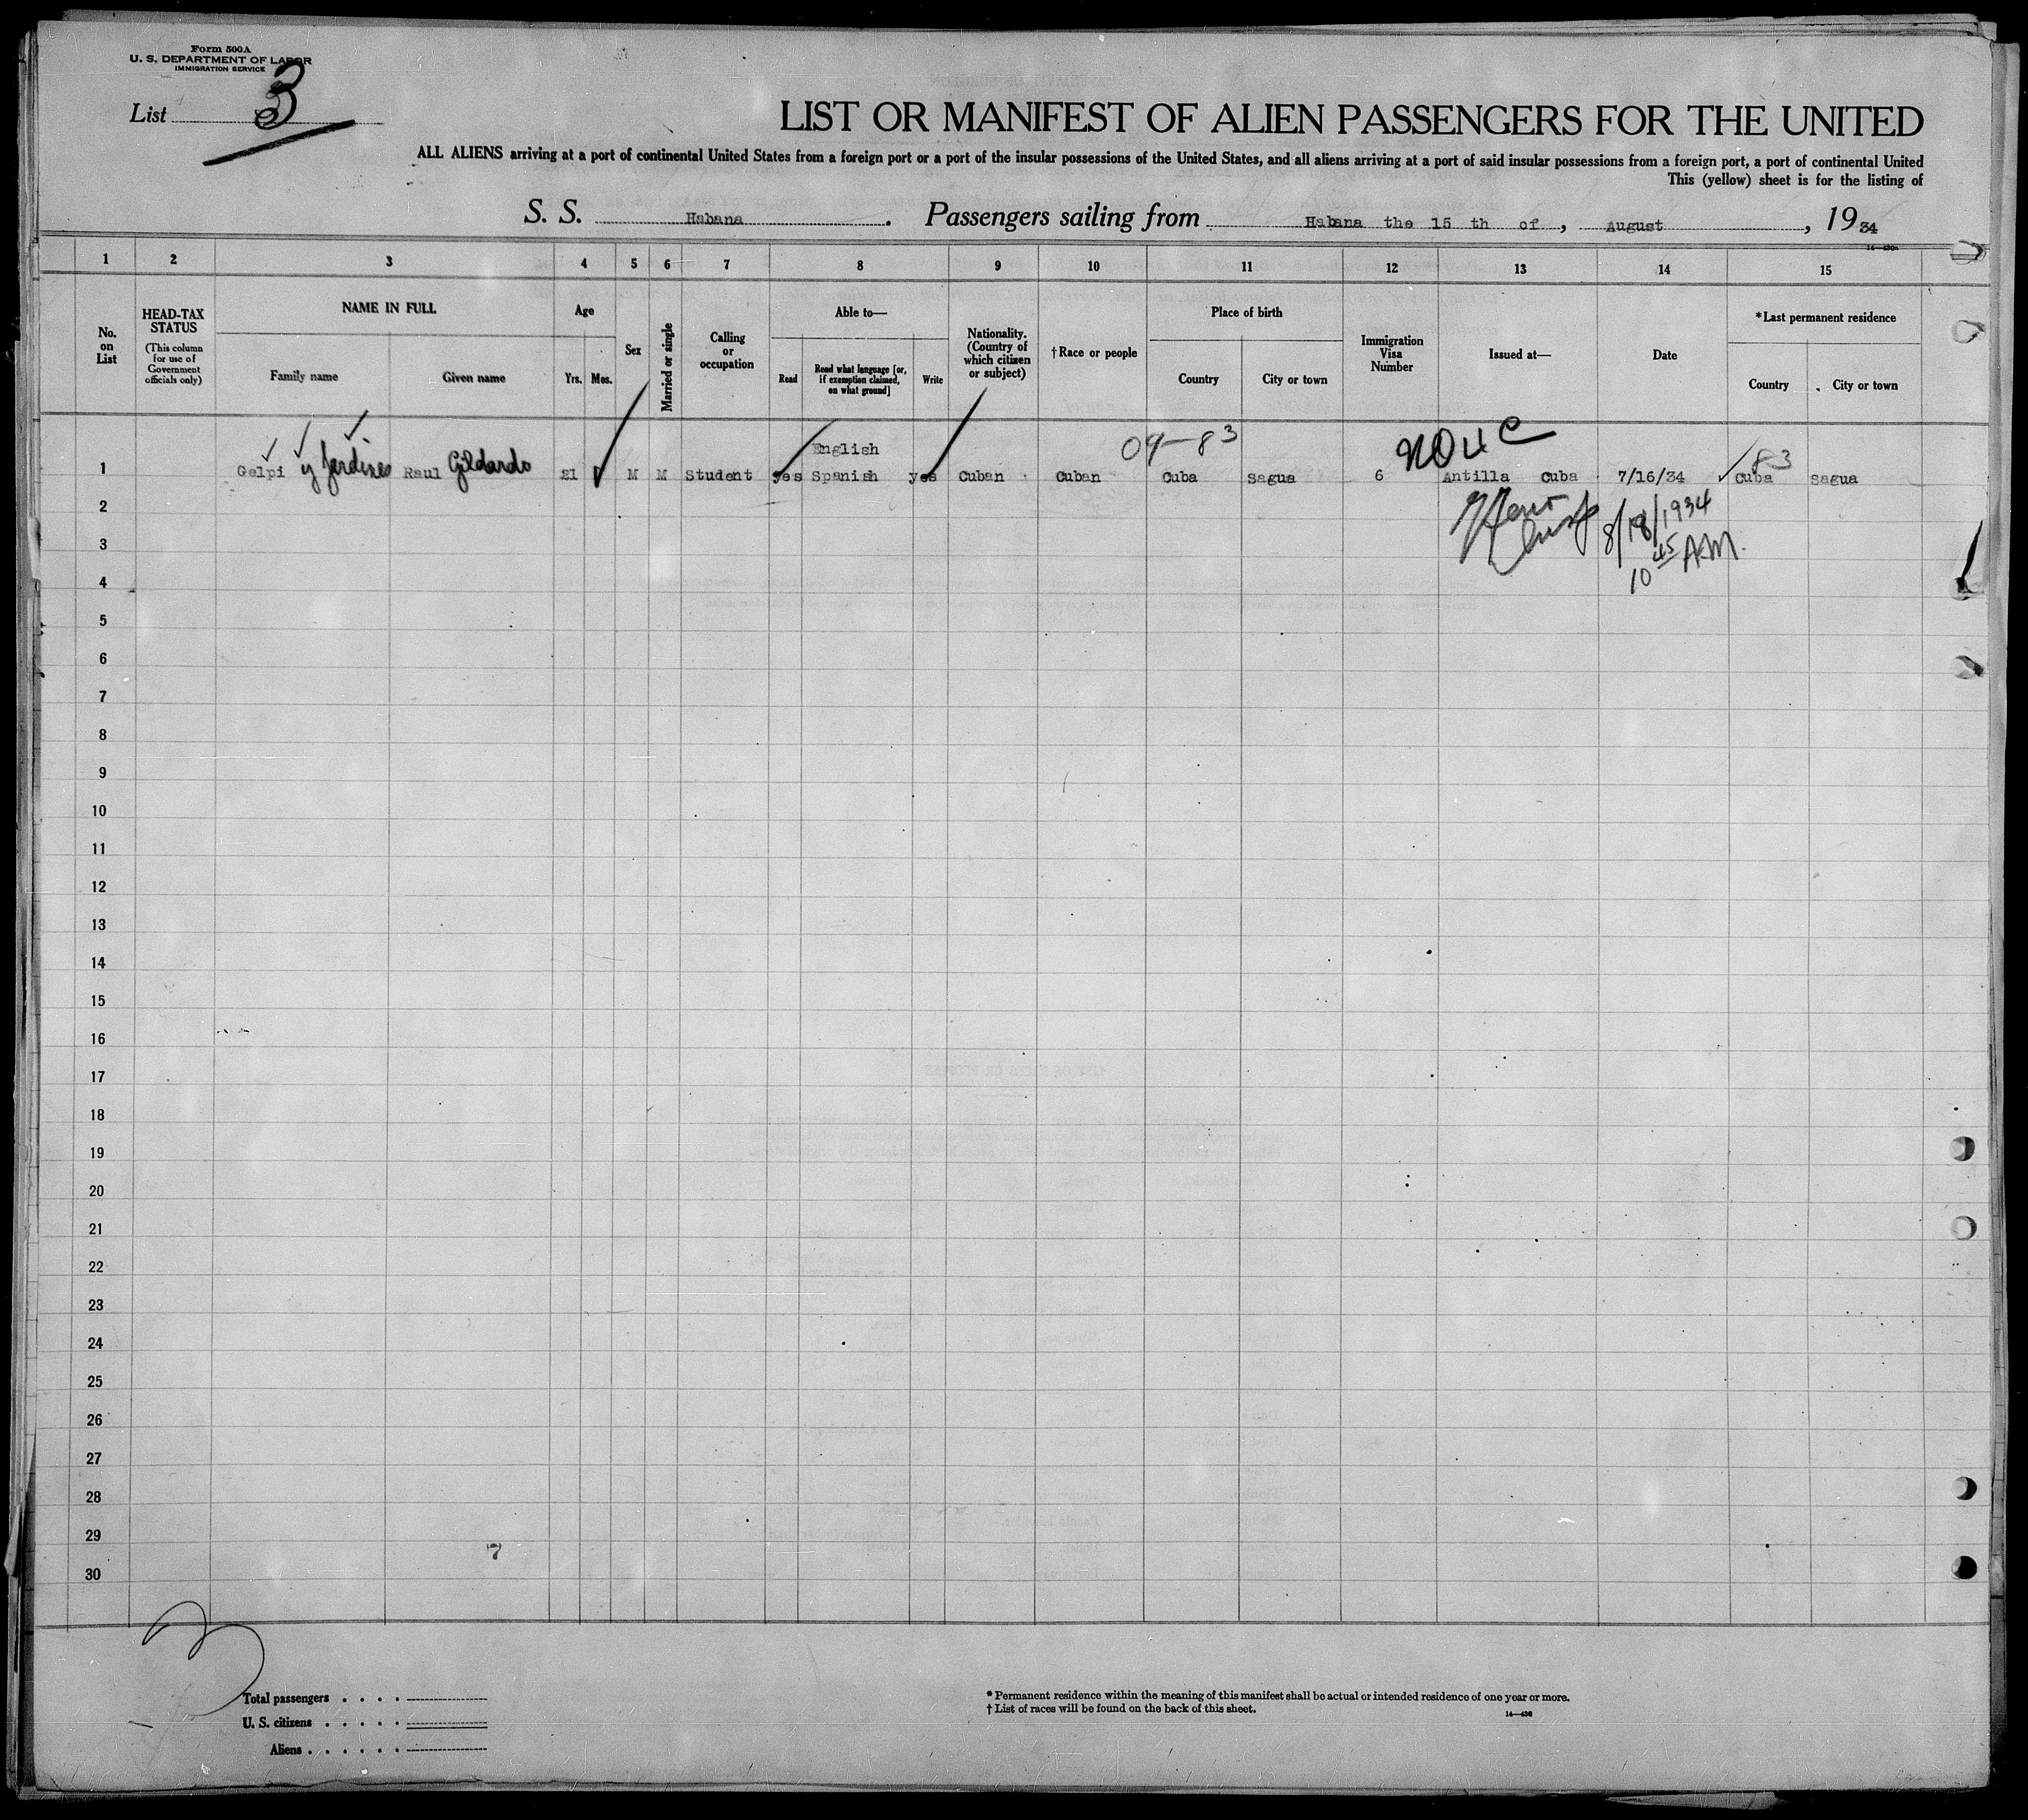 Form 500A
U. S. DEPARTMENT OF LABOR
IMMIGRATION SERVICE
List 3
LIST OR MANIFEST OF ALIEN PASSENGERS FOR THE UNITED
ALL ALIENS arriving at a port of continental United States from a foreign port or a port of the insular possessions of the United States, and all aliens arriving at a port of said insular possessions from a foreign port, a port of continental United
This (yellow) sheet is for the listing of
S. S. Habana. Passengers sailing from Habana the 15 th of, August, 1934
1 2 3 4 5 6 7 8 9 10 11 12 13 14 15
No. on List
HEAD-TAX STATUS
(This column for use of Government officials only)
NAME IN FULL
Family name
Given name
Age
Yrs.
Mos.
Sex
Married or single
Calling or occupation
Able to—
Read
Read what language [or, if exemption claimed, on what ground]
Write
Nationality. (Country of which citizen or subject)
†Race or people
Place of birth
Country
City or town
Immigration Visa Number
Issued at—
Date
*Last permanent residence
Country
City or town
09-83
English
83
1 Gelpi y Jardines Raul Gildardo 21 M M Student yes Spanish yes Cuban Cuban Cuba Sagua 6 Antilla Cuba 7/16/34 Cuba Sagua
2
8/18/1934
3
10 45 A.M.
4
5
6
7
8
9
10
11
12
13
14
15
16
17
18
19
20
21
22
23
24
25
26
27
28
29
7
30
Total passengers . . . .
U. S. citizens . . . . .
Aliens . . . . . .
* Permanent residence within the meaning of this manifest shall be actual or intended residence of one year or more.
† List of races will be found on the back of this sheet.
14—430